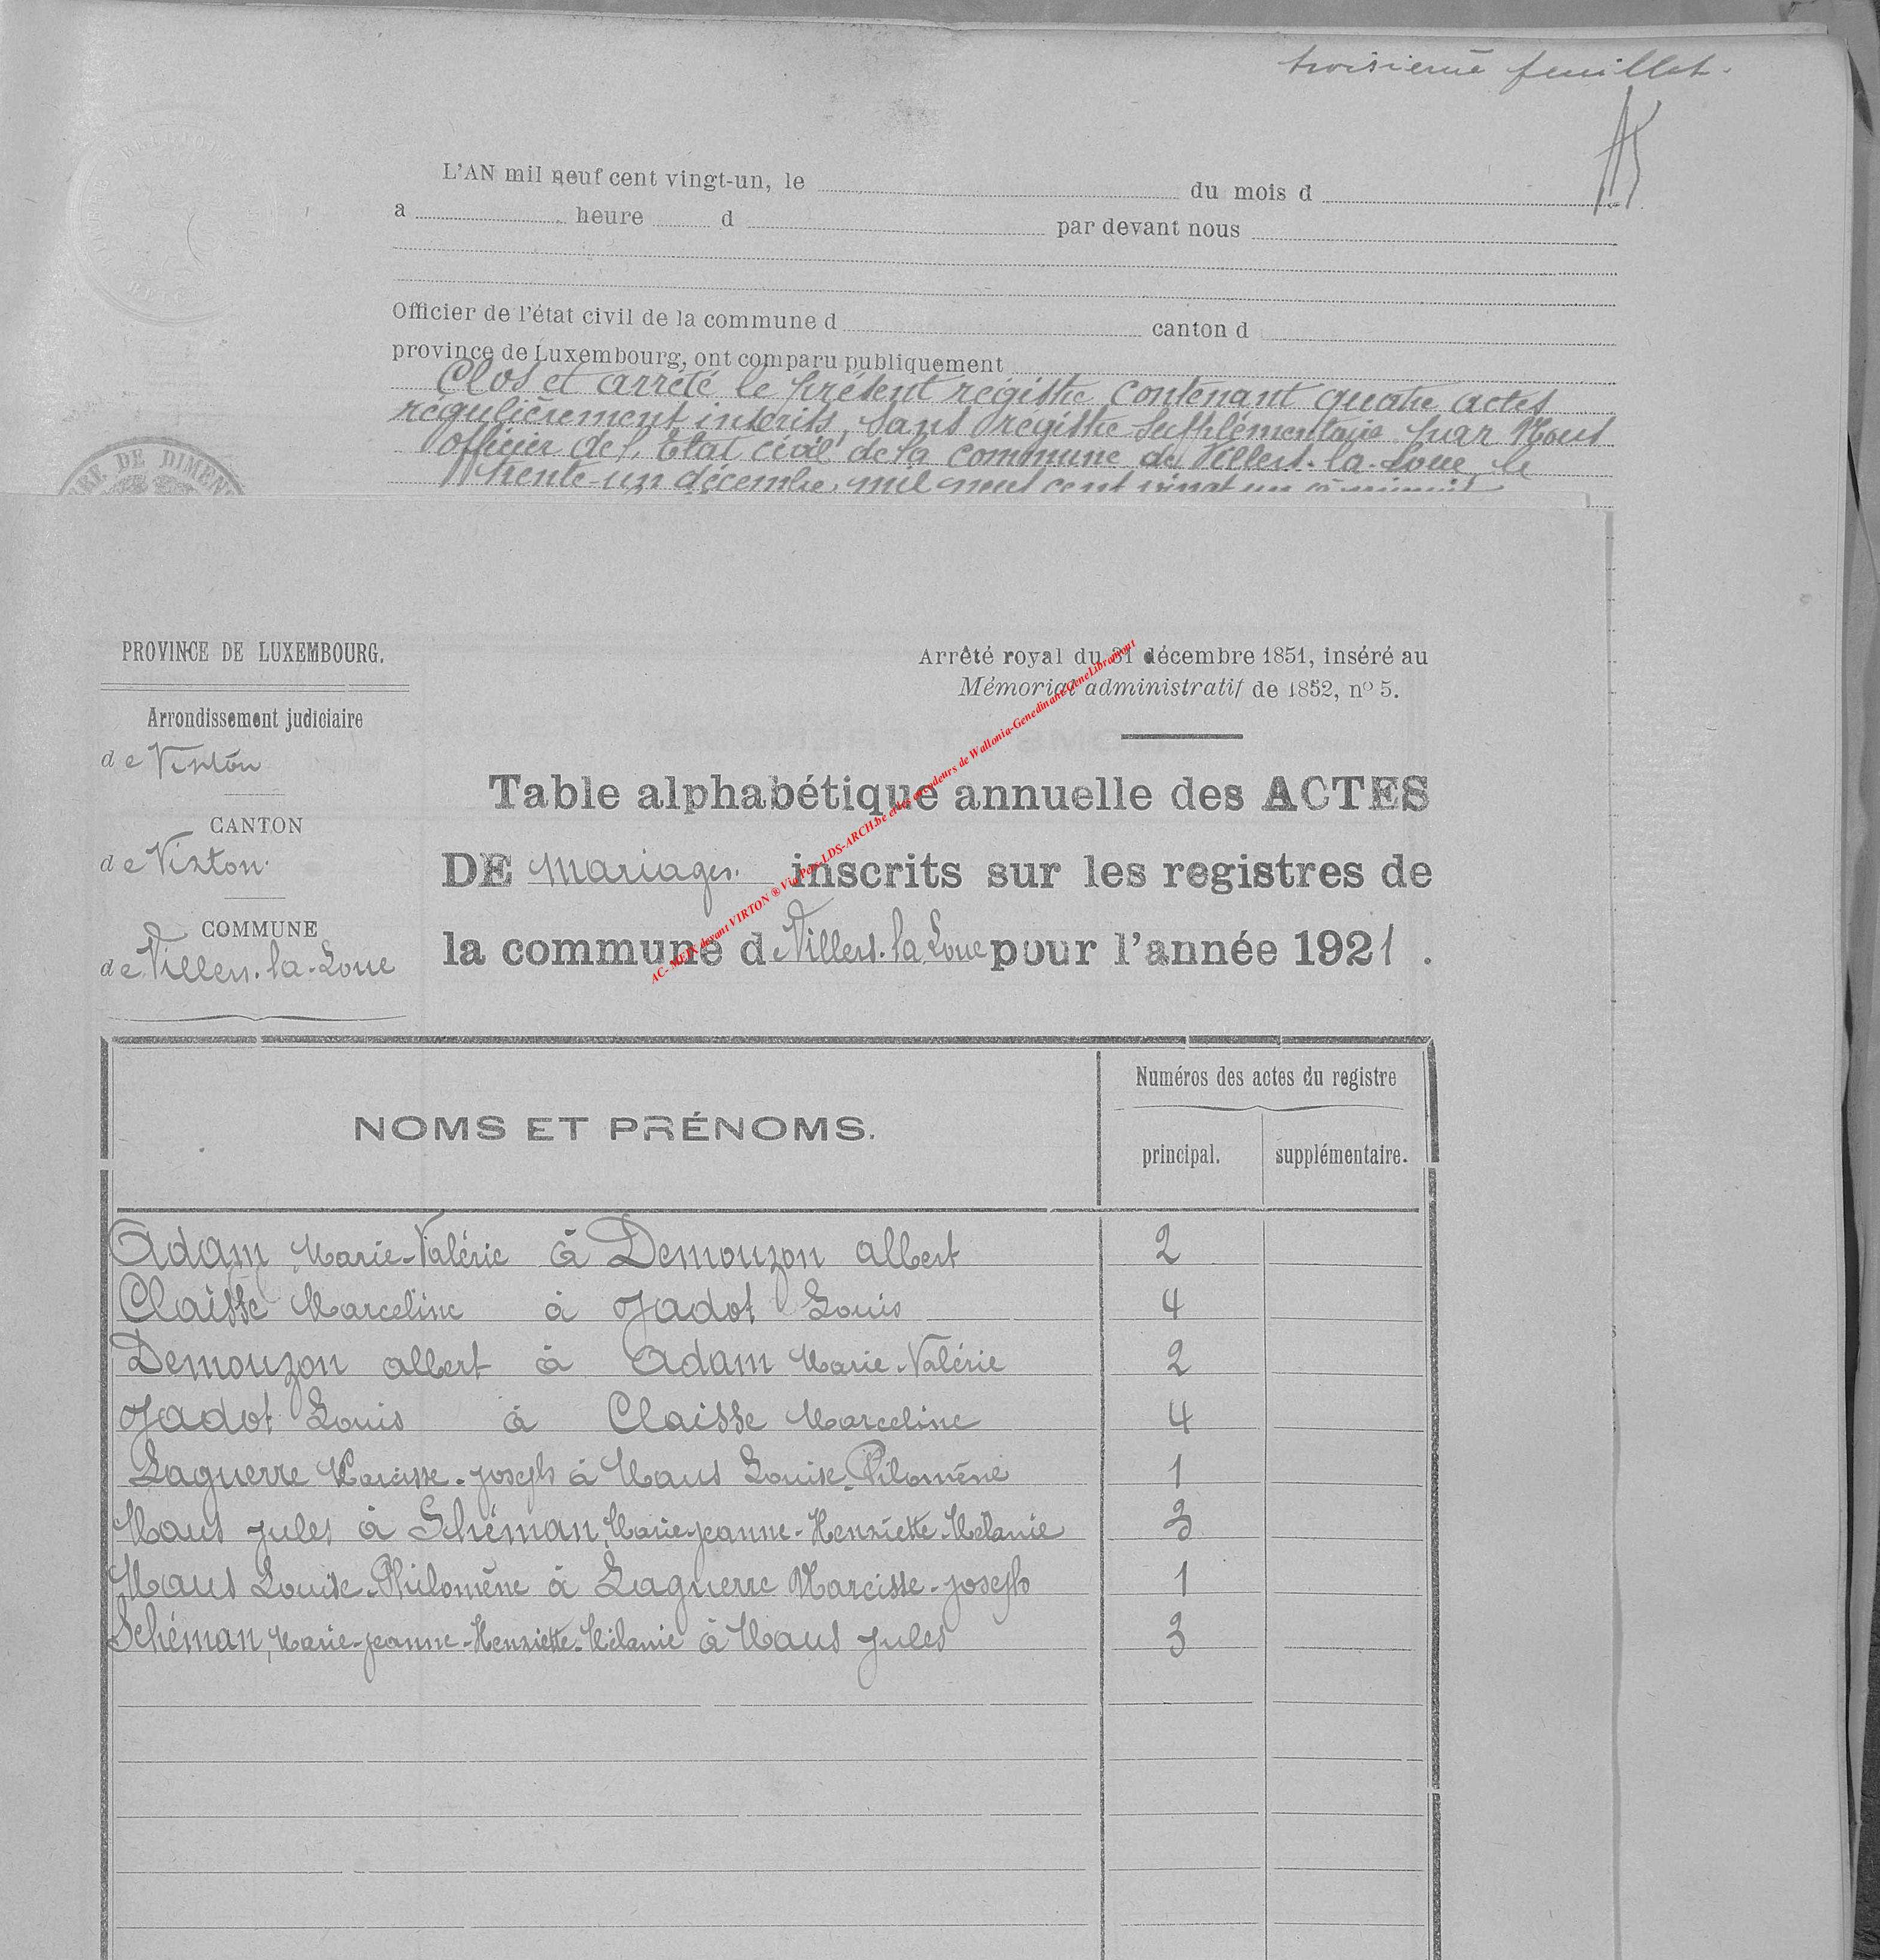 troisième feuillet.
L'AN mil neuf cent vingt-un, le du mois d
a heure d par devant nous
Officier de l'état civil de la commune d canton d
province de Luxembourg, ont comparu publiquement
Clos et arrêté le présent régistre contenant quatre actes
régulièrement inscrits, sans régistre supplémentaire par Nous
officier de l'Etat civil de la commune de Villers-la-Loue, le
trente-un décembre, mil neuf cent vingt un
RE DE DIMEN
PROVINCE DE LUXEMBOURG.
Arrondissement judiciaire
de Virton
CANTON
de Virton.
COMMUNE
de Villers-la-Loue
Arrêté royal du 31 décembre 1851, inséré au
Mémorial administratif de 1852, nº 5.
Table alphabétique annuelle des ACTES
DE Mariages. inscrits sur les registres de
la commune de Villers-la-Loue pour l'année 1921.
NOMS ET PRÉNOMS.
Numéros des actes du registre
principal. supplémentaire.
Adam Marie-Valérie à Demouzon Albert 2
Claisse Marceline à Jadot Louis 4
Demouzon Albert à Adam Marie-Valérie 2
Jadot Louis à Claisse Marceline 4
Laguerre Narcisse-Joseph à Maus Louise-Philomène 1
Maus Jules à Schéman, Marie-Jeanne-Henriette-Mélanie 3
Maus Louise-Philomène à Laguerre Narcisse-Joseph 1
Schéman, Marie-Jeanne-Henriette-Mélanie à Maus Jules 3